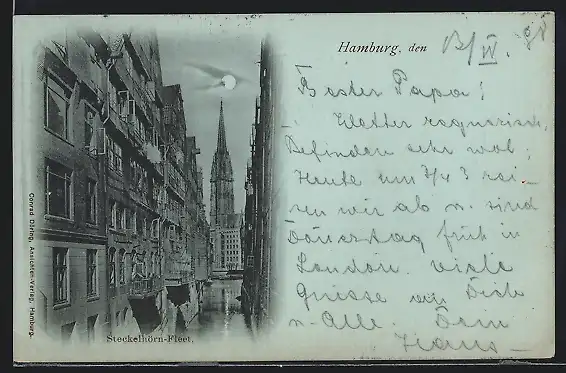 Hamburg, den 13/IV. 98
Bester Papa!
Wetter regnerisch,
Befinden sehr wol;
Heute um 3/4 3 rei-
sen wir ab u. sind
Donerstag früh in
London. Viele
Grüsse an Dich
u. Alle. Dein
Hans
Steckelhörn-Fleet.
Conrad Döring, Ansichten-Verlag, Hamburg.